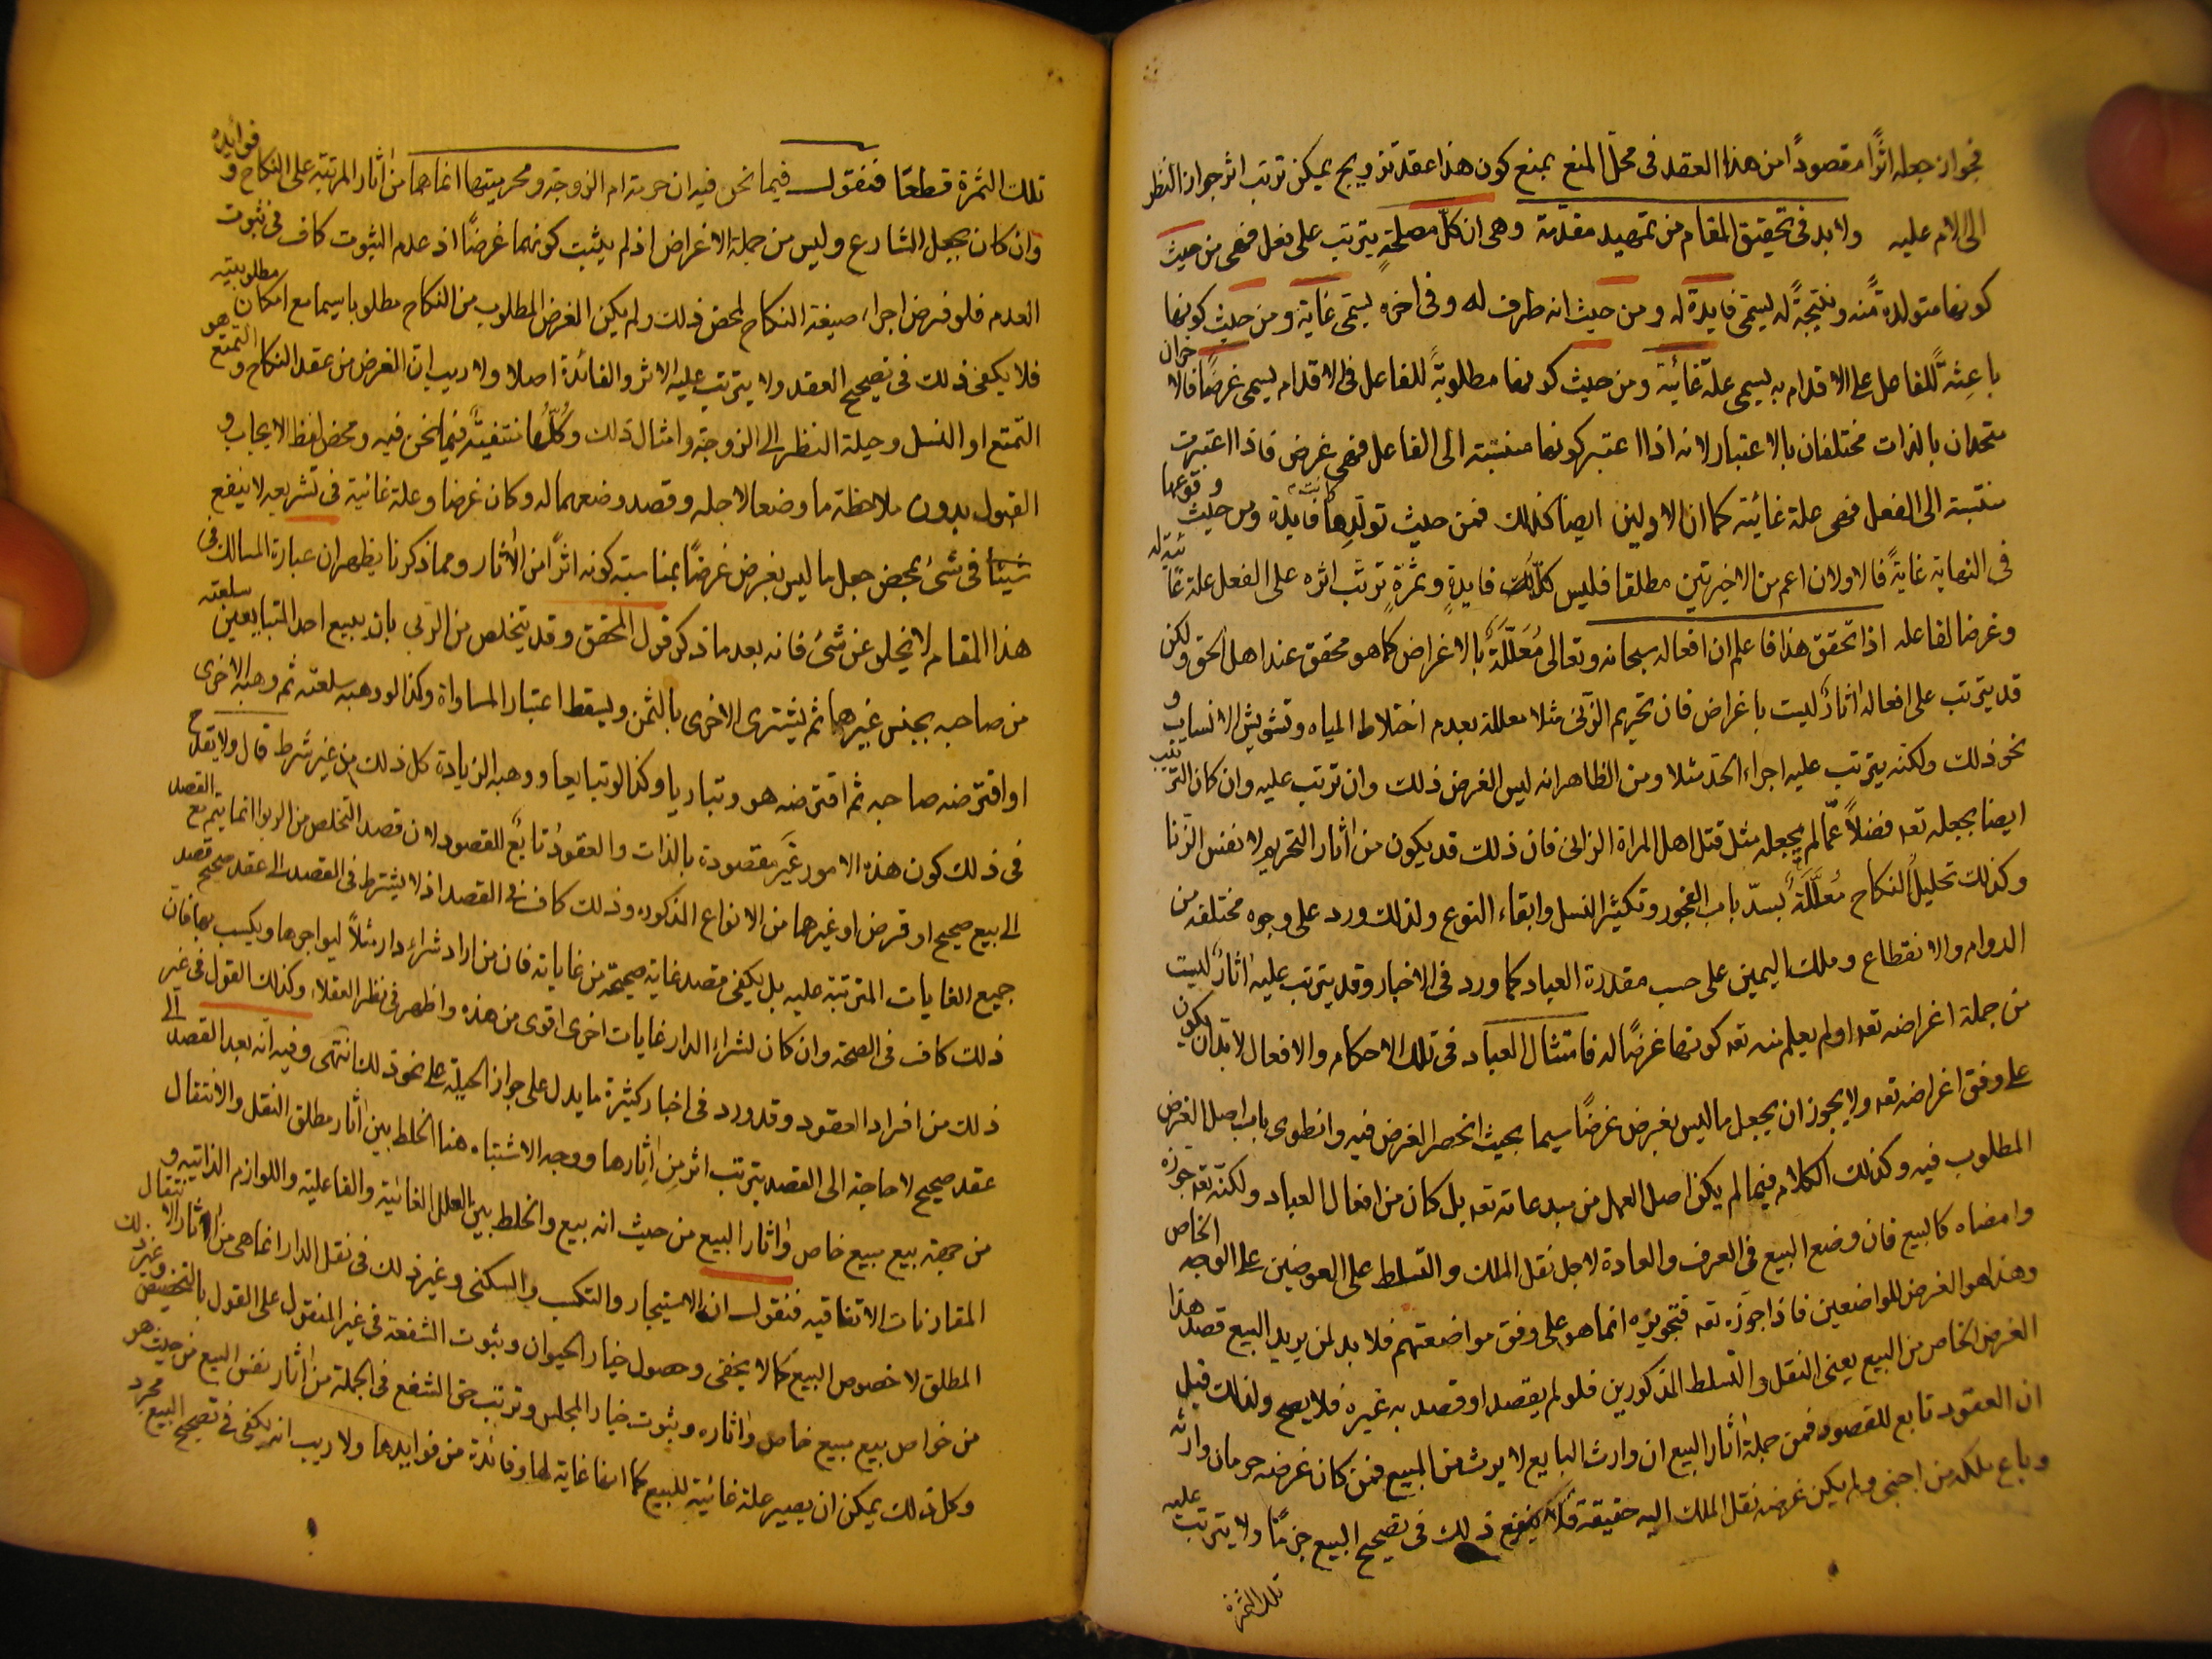 فجواز جعله اثرًا مقصودًا من هذا العقد فى محلّ المنع بمنع كون هذا عقد تزويج يمكن ترتب اثر جواز النظر
الى الام عليه ولا بد فى تحقيق المقام من تمهيد مقدّمة وهى ان كلّ مصلحةٍ يترتب على فعل فهى من حيث
كونها متولدة منه ونتيجةً له يسمّى فايدة له ومن حيث انه طرف له وفى اخره يسمّى غاية ومن حيث كونها
باعِثةً للفاعل على الاقدام به يسمى علة غائية ومن حيث كونها مطلوبةً للفاعل فى الاقدام يسمى غرضًا فالاخران
متحدان بالذات مختلفان بالاعتبار لانه اذا اعتبر كونها منتسبة الى الفاعل فهى غرض فاذا اعتبرت
منتسبة الى الفعل فهى علة غائية كما ان الاولين ايضا كذلك فمن حيث تولّدِها كانت فايدة ومن حيث وقوعها
فى النهاية غايةً فالاولان اعم من الاخيرتين مطلقا فليس كلّ فايدةٍ وثمرةٍ ترتّب اثره على الفعل علة غائية له
وغرضا لفاعله اذا تحقق هذا فاعلم ان افعاله سبحانه وتعالى مُعَلّلَةٌ بالاغراض كما هو محقق عند اهل الحق ولكن
قد يترتب على افعاله اثارٌ ليست باغراض فان تحريم الزنى مثلا معللة بعدم اختلاط المياه وتشويش الانساب و
نحو ذلك ولكنه يترتب عليه اجراء الحد مثلا ومن الظاهر انه ليس الغرض ذلك وان ترتب عليه وان كان الترتب
ايضا بجعله تعه فضلاً عمّا لم يجعله مثل قتل اهل المراة الزانى فان ذلك قد يكون من اثار التحريم لا نفس الزنا
وكذلك تحليل النكاح مُعلَّلَةٌ بسدّ باب الفجور وتكثير النسل وابقاء النوع ولذلك ورد على وجوه مختلفه من
الدوام والانقطاع وملك اليمين على حسب مقدرة العباد كما ورد فى الاخبار وقد يترتب عليه اثارٌ ليست
من جملة اغراضه تعه او لم يعلم منه تعه كونها غرضًا له فامتثال العباد فى تلك الاحكام والافعال لا بدّ ان يكون
على وفق اغراضه تعه ولا يجوز ان يجعل ما ليس بغرض غرضًا سيما بحيث انحصر الغرض فيه وانطوى باب اصل الغرض
المطلوب فيه وكذلك الكلام فيما لم يكن اصل العمل من مبدعاته تعه بل كان من افعال العباد ولكنّه تعه جوزه
وامضاه كالبيع فان وضع البيع فى العرف والعادة لاجل نقل الملك والتسلط على العوضين على الوجه الخاص
وهذا هو الغرض للواضعين فاذا جوّزه تعه فتجويزه انما هو على وفق مواضعتهم فلا بد لمن يريد البيع قصد هذا
الغرض الخاص من البيع يعنى النقل والتسلط المذكورين فلو لم يقصد او قصد به غيره فلا يصح ولذلك قيل
ان العقود تابع للقصود فمن جملة اثار البيع ان وارث البايع لا يرث من المبيع فمن كان غرضه حرمان وارثه
وباع ملكه من اجنبى ولم يكن غرضه نقل الملك اليه حقيقة فلا ينفع ذلك فى تصحيح البيع جزمًا ولا يترتب عليه
تلك الثمرة
تلك الثمرة قطعًا فنقول فيما نحن فيه ان حرمة ام الزوجة ومحرميتها انما هما من اثار المرتبّة على النكاح وفوائده
وان كان بجعل الشارع وليس من جملة الاغراض اذ لم يثبت كونهما غرضًا اذ عدم الثبوت كاف فى ثبوت
العدم فلو فرض اجراء صيغة النكاح لمحض ذلك ولم يكن الغرض المطلوب من النكاح مطلوبا سيما مع امكان مطلوبيته
فلا يكفى ذلك فى تصحيح العقد ولا يترتب عليه الاثر والفائدة اصلا ولا ريب ان الغرض من عقد النكاح هو التمتع و
التمتع او النسل وحيلة النظر الى الزوجة وامثال ذلك وكُلّها منتفيةٌ فيما نحن فيه ومحض لفظ الايجاب و
القبول بدون ملاحظة ما وضعا لاجله وقصد وضعهما له وكان غرضا وعلة غائية فى تشريعه لا ينفع
شيئا فى شئ بمحض جعل ما ليس بغرض غرضًا بمناسبة كونه اثرًا من الاثار ومما ذكرنا يظهر ان عبارة المسالك فى
هذا المقام لا يخلو عن شئ فانه بعد ما ذكر قول المحقق وقد يتخلص من الربى بان يبيع احد المتبايعين سلعته
من صاحبه بجنس غيرهما ثم يشترى الاخرى بالثمن ويسقط اعتبار المساواة وكذا لو وهبه سلعته ثم وهبه الاخرى
او اقترضه صاحبه ثم اقترضه هو وتباريا وكذا لو تبايعا ووهبه الزيادة كل ذلك من غير شرط قال ولا يقدح
فى ذلك كون هذه الامور غَيَر مقصودة بالذات والعقودُ تابعٌ للقصود لان قصد التخلص من الربوا انما يتم مع القصد
الى بيع صحيح او قرض او غيرهما من الانواع المذكوره وذلك كاف فى القصد اذ لا يشترط فى القصد الى عقد صحيح قصد
جميع الغايات المترتبة عليه بل يكفى قصد غاية صحيحة من غاياته فان من اراد شراء دار مثلاً ليواجرها ويكسب بها فان
ذلك كاف فى الصحة وان كان لشراء الدار غايات اخرى اقوى من هذه واظهر فى نظر العقلاء وكذلك القول فى غير
ذلك من افراد العقود وقد ورد فى اخبار كثيرة ما يدل على جواز الحيلة على نحو ذلك انتهى وفيه انه بعد القصد الى
عقد صحيح لا حاجة الى القصد بترتب اثر مِن اثارها ووجه الاشتباه هنا الخلط بين اثار مطلق النقل والانتقال
من جهة بيع مبيع خاص واثار البيع من حيث انه بيع والخلط بين العلل الغائية والفاعلية واللوازم الذاتيه و
المقارنات الاتفاقيه فنقول ان الاستيجار والتكسب والسكنى وغير ذلك فى نقل الدار انما هى من اثار الانتقال
المطلق لا خصوص البيع كما لا يخفى وحصول خيار الحيوان وثبوت الشفعة فى غير المنقول على القول بالتخصيص وغير ذلك
من خواص بيع مبيع خاص واثاره وثبوت خيار المجلس وترتب حق الشفع فى الجملة من اثار نفس البيع من حيث هو
وكل ذلك يمكن ان يصير علة غائية للبيع كما انها غاية لها وفائدة من فوايدها ولا ريب انه يكفى فى تصحيح البيع مجرد